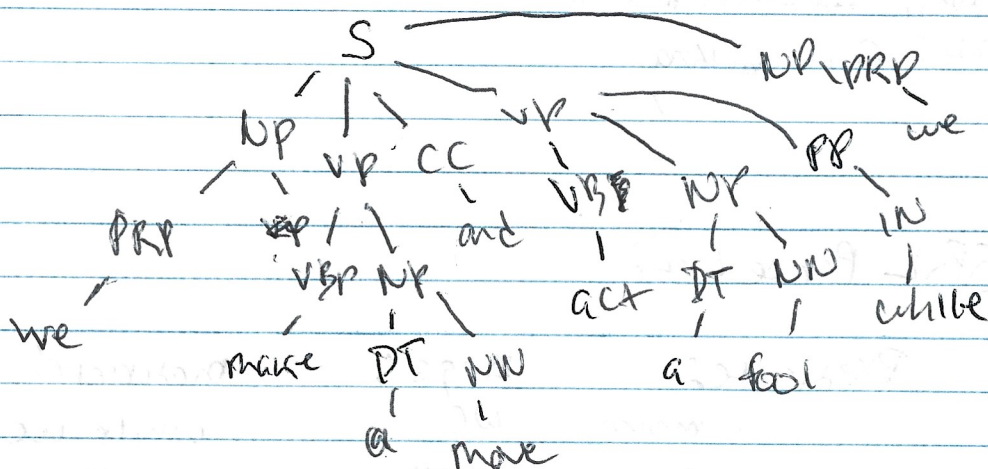 S
NP PRP
we
NP VP CC VP PP
PRP VBP NP and VB NP IN
we make DT NN act DT NN while
a move a fool